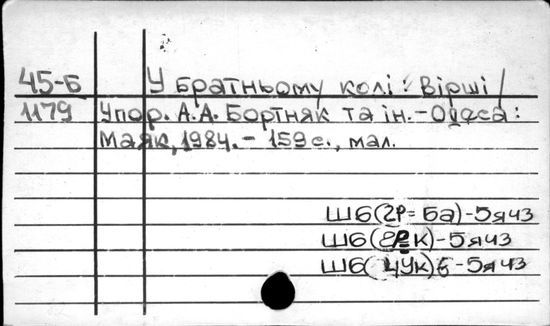 45-Б У братньому колі: Вірші /
1179 Упор. А.А. Бортняк та ін.-Одеса:
Маяк, 1984.- 159 с., мал.
Ш6(2Р=Ба)-5я43
Ш6(2Р К)-5я43
Ш6(4Ук)6-5я43